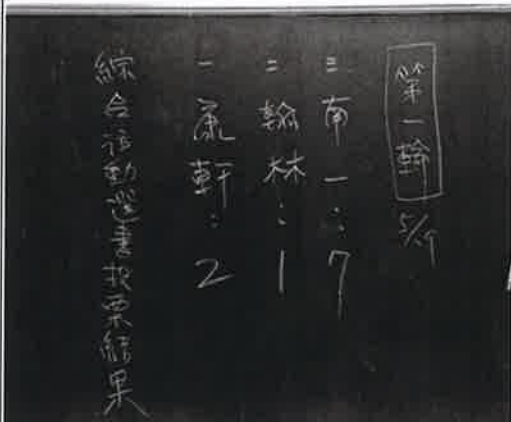 第一輪
三 南一：7
二 翰林：1
一 康軒：2
綜合活動選書投票結果